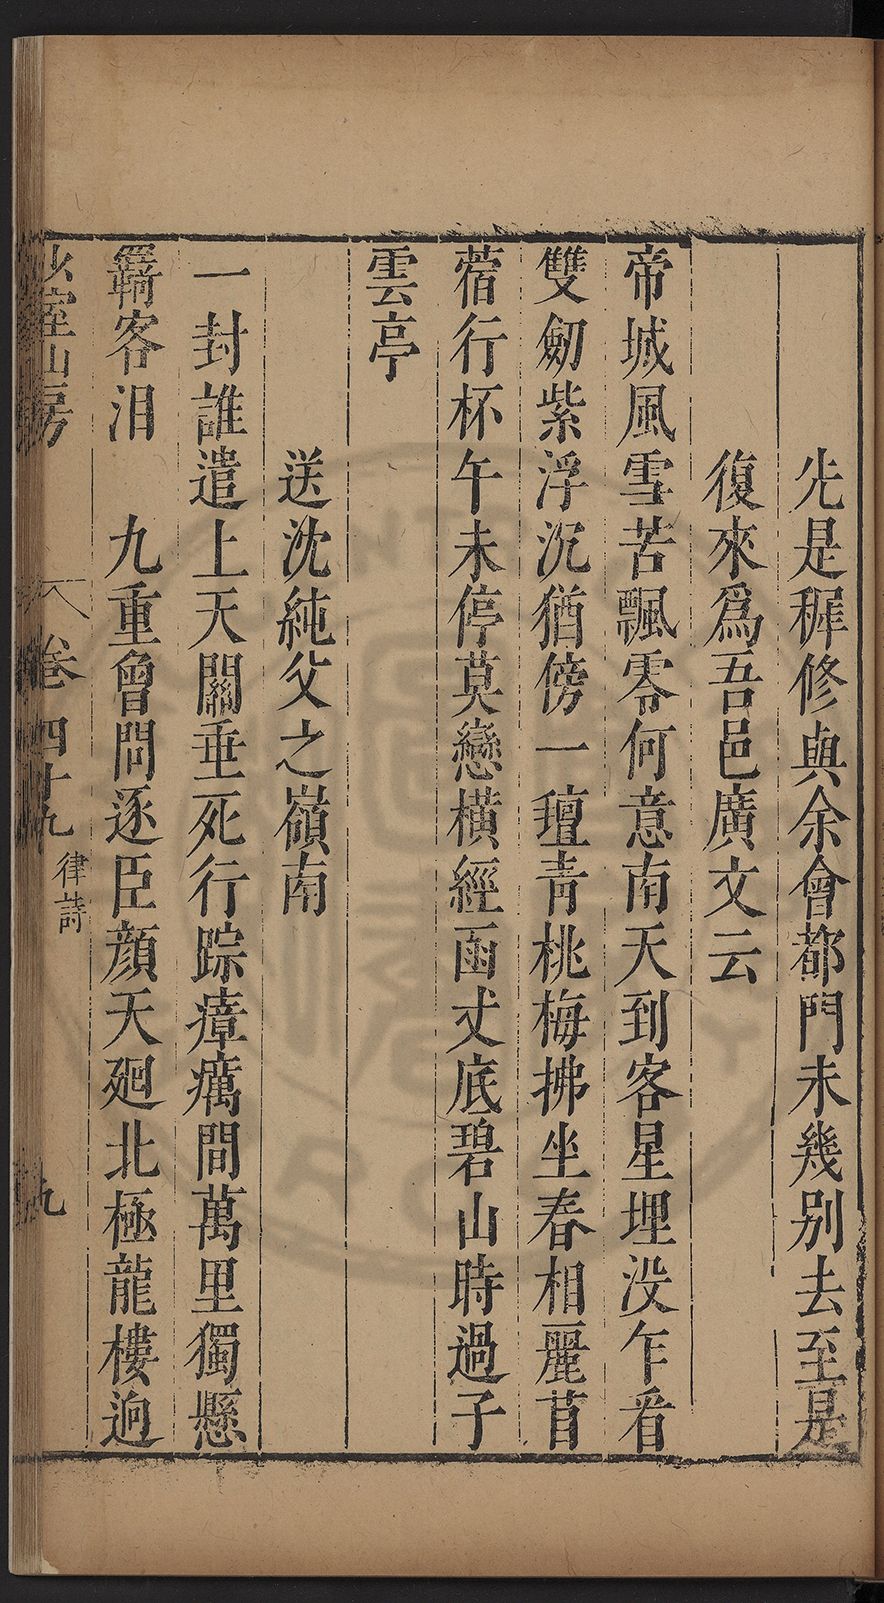 先是穉修與余會都門未幾别去至是
復來爲吾邑廣文云
帝城風雪苦飄零何意南天到客星埋没乍看
雙劒紫浮沉猶傍一氊青桃梅拂坐春相麗苜
蓿行杯午未停莫戀橫經函丈底碧山時過子
雲亭
送沈純父之嶺南
一封誰遣上天關垂死行踪瘴癘間萬里獨懸
羇客泪　九重曾問逐臣顔天廻北極龍樓逈
少室山房
卷四十九
律詩
九